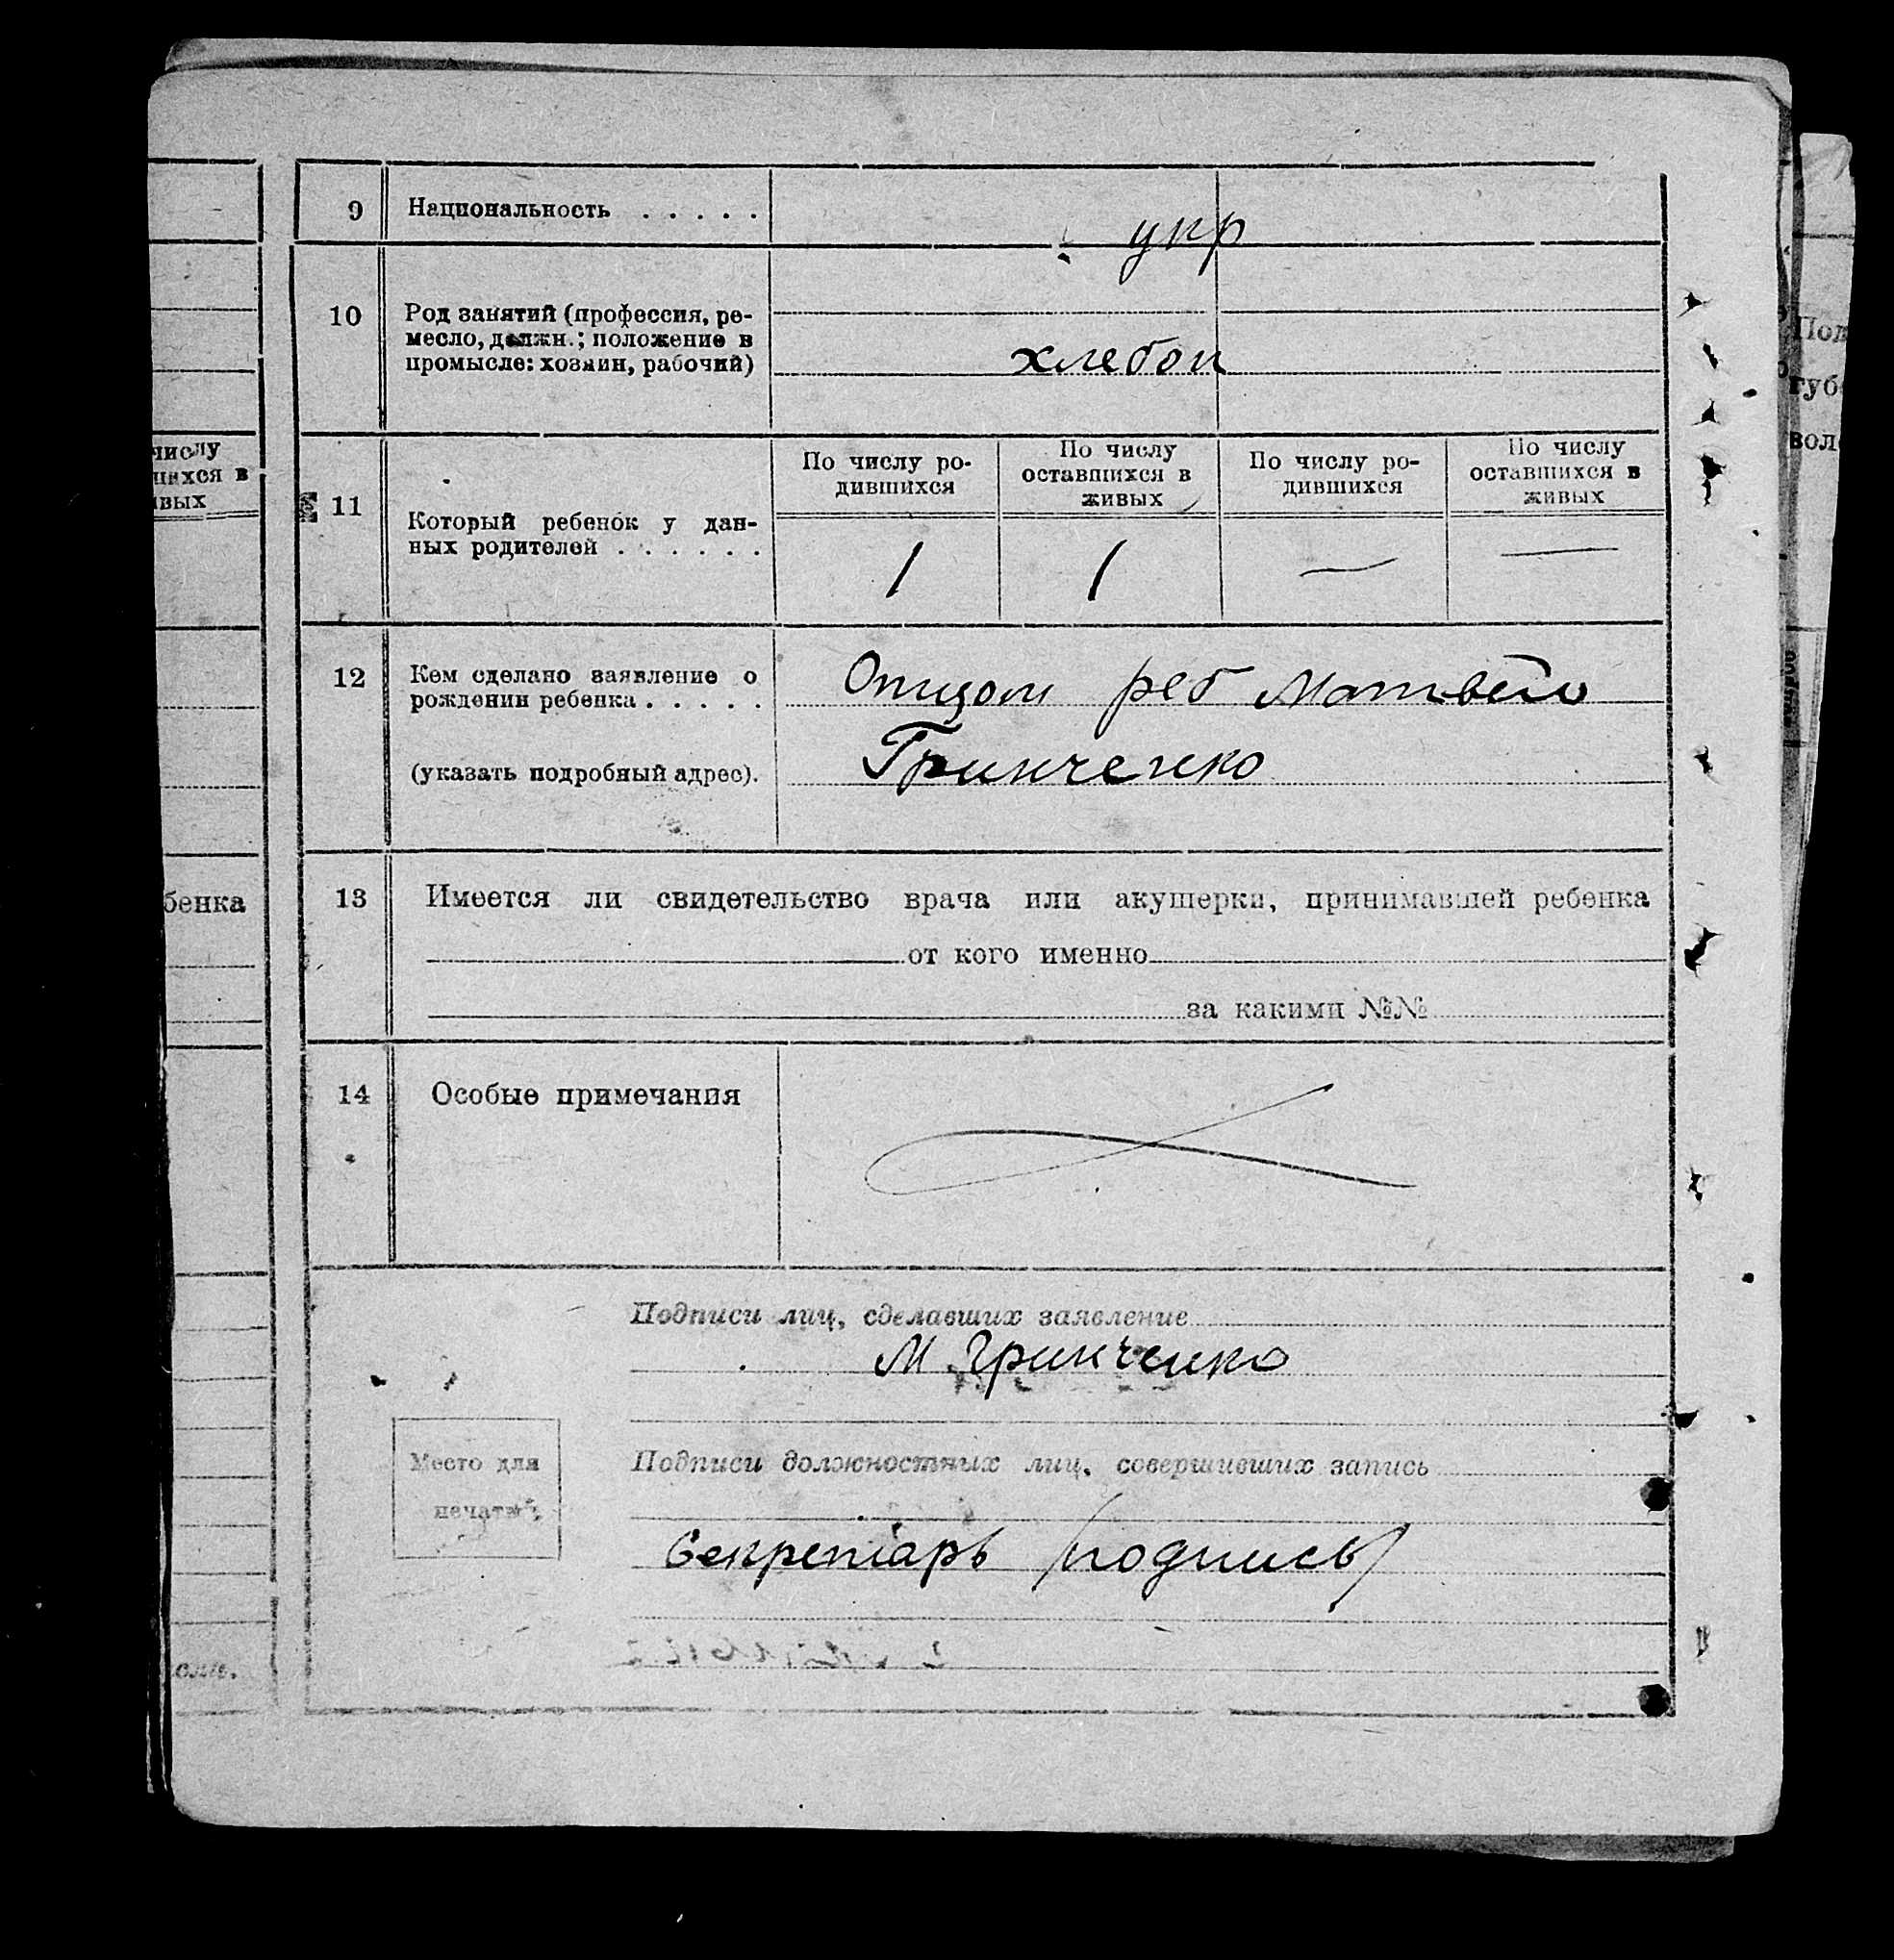 9 Национальность . . . . .
укр
10 Род занятий (профессия, ре-
месло, должн.; положение в
промысле: хозяин, рабочий)
хлебоп
числу
шихся в
ивых
По числу ро-
дившихся
По числу
оставшихся в
живых
По числу ро-
дившихся
По числу
оставшихся в
живых
11 Который ребенок у дан-
ных родителей . . . . . .
1 1 — —
12 Кем сделано заявление о
рождении ребенка . . . . .
(указать подробный адрес).
Отцом реб Матвей
Гринченко
бенка
13 Имеется ли свидетельство врача или акушерки, принимавшей ребенка
от кого именно
за какими №№
14 Особые примечания
Подписи лиц, сделавших заявление
М Гринченко
Место для
печати
Подписи должностных лиц, совершивших запись
Секретарь /подпись/
Под
губ
вол